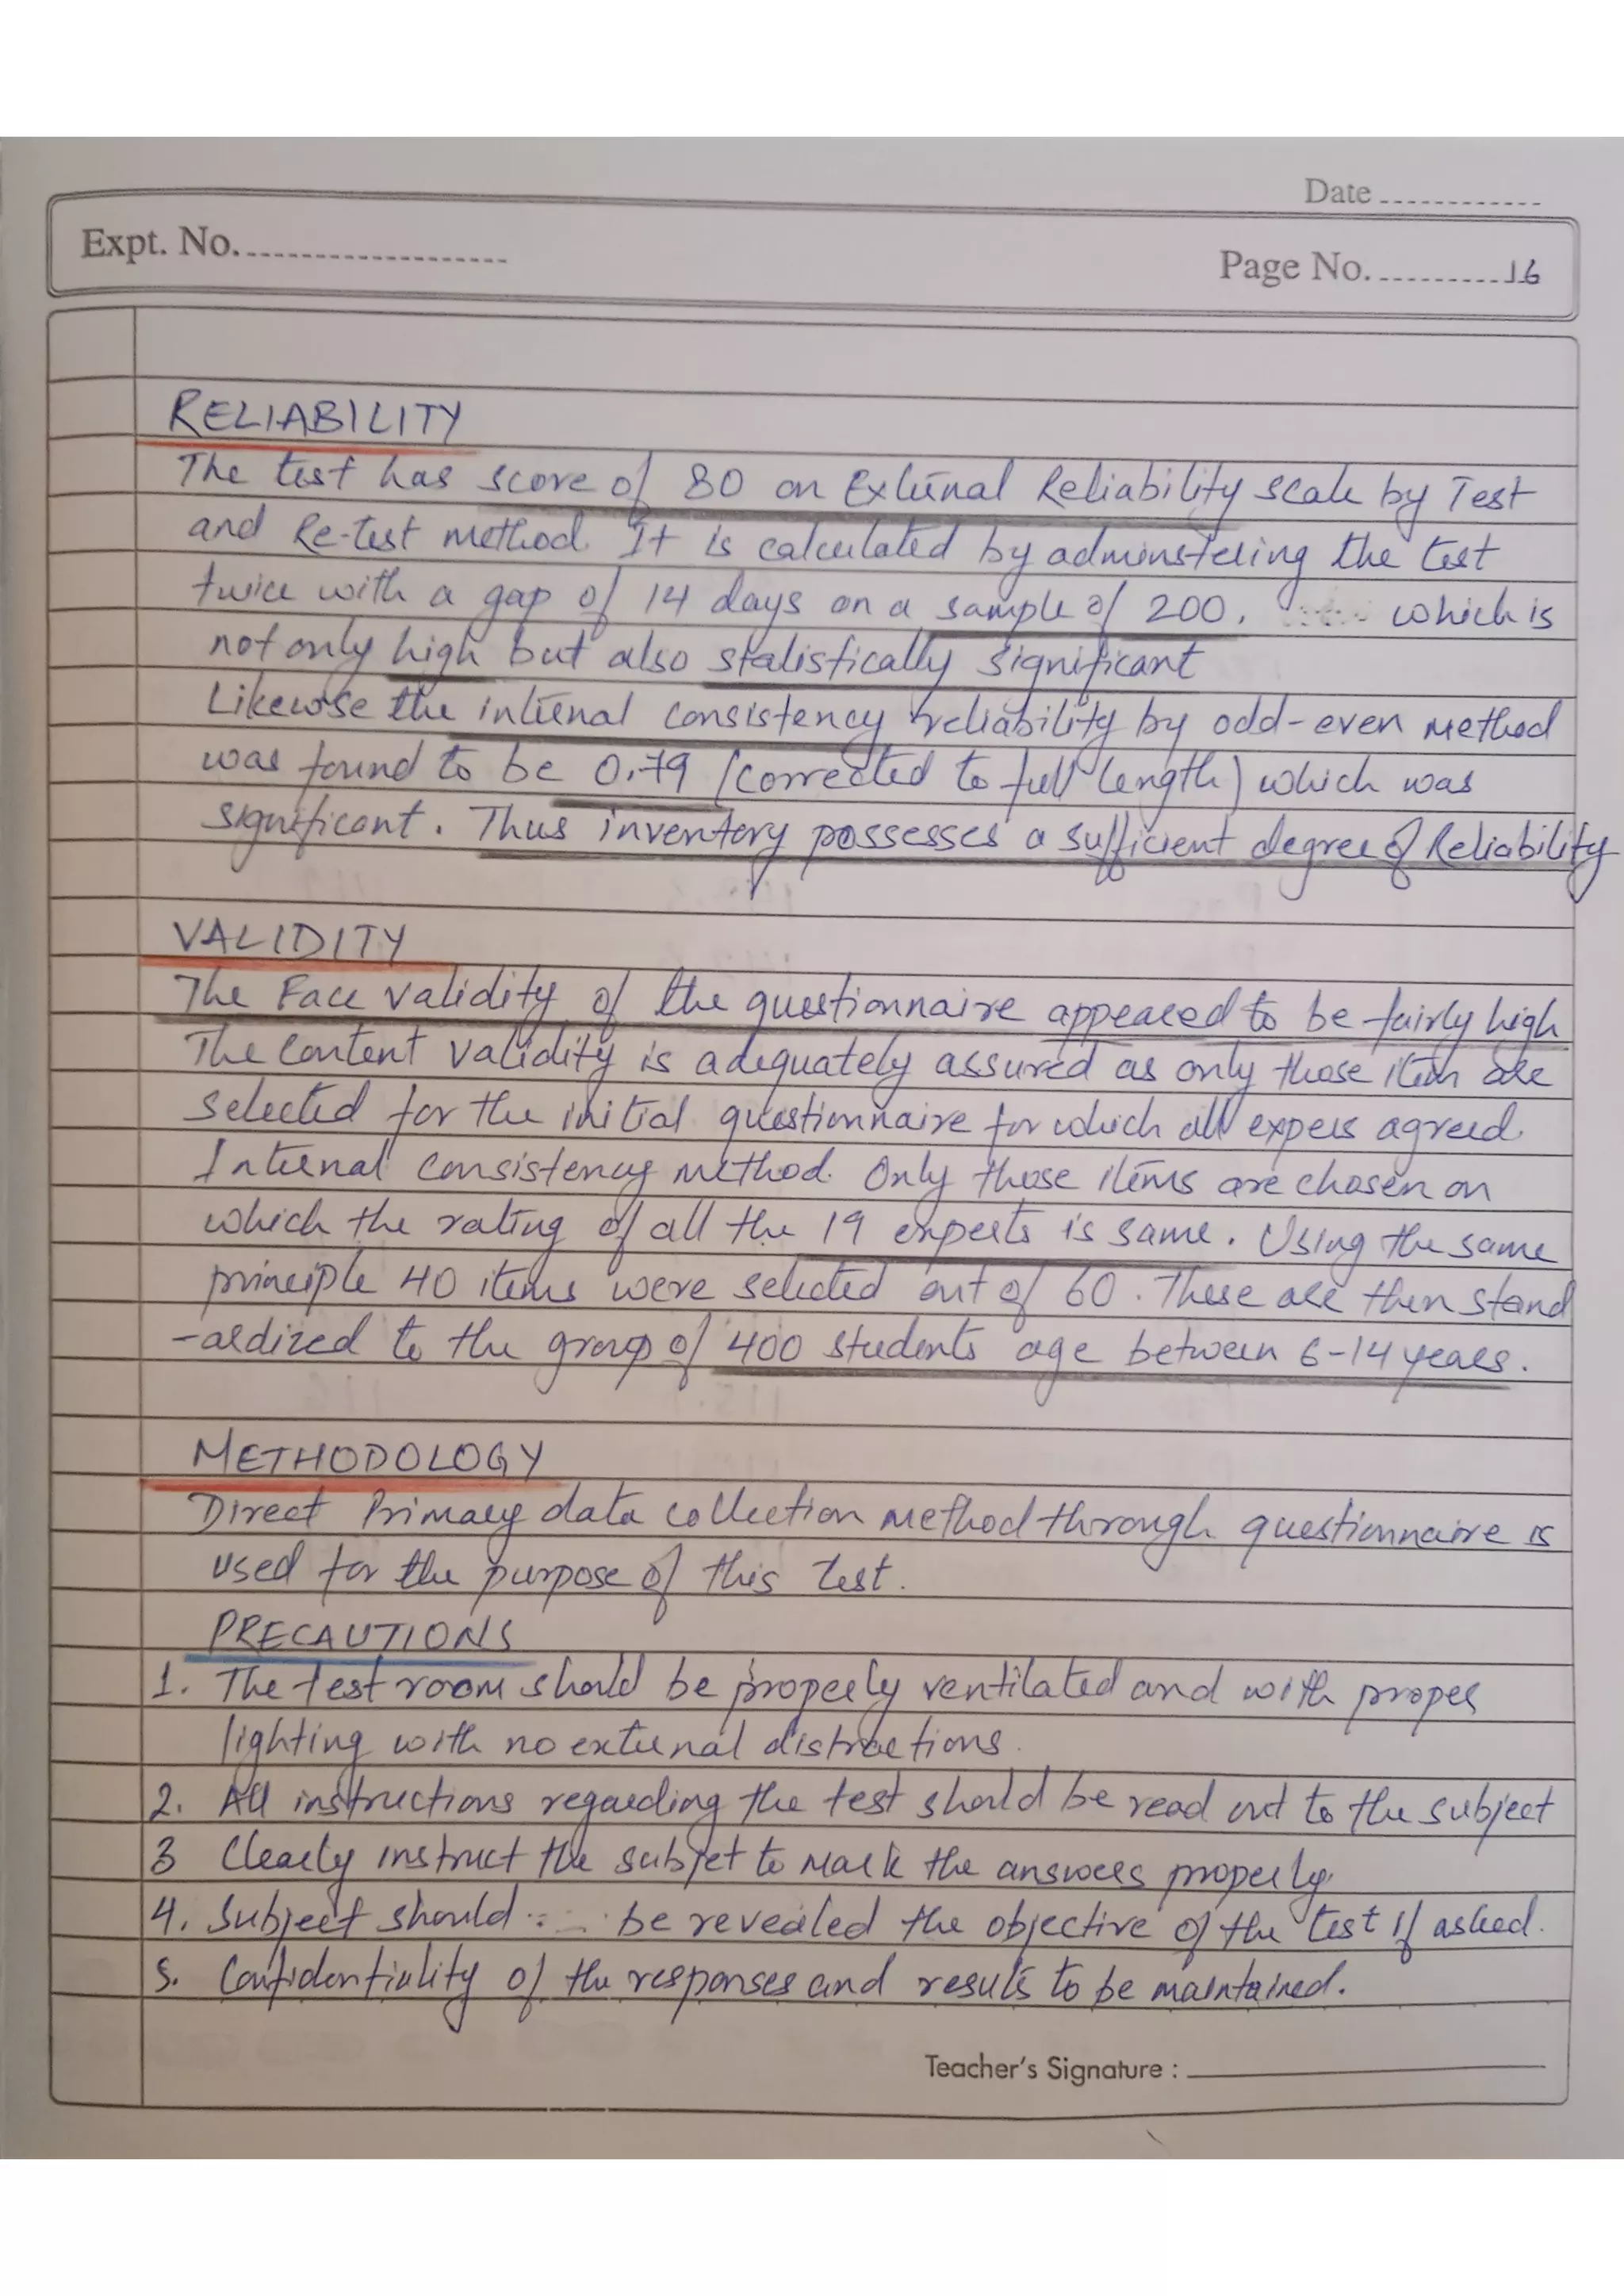 Date ............
Expt. No. ....................
Page No. .......... 16
RELIABILITY
The test has score of 80 on External Reliability scale by Test
and Re-test method. It is calculated by adminstering the test
twice with a gap of 14 days on a sample of 200. which is
not only high but also statistically significant
Likewise the internal consistency reliability by odd-even method
was found to be 0.79 (corrected to full length) which was
significant. Thus inventory possesses a sufficient degree of Reliability
VALIDITY
The Face validity of the questionnaire appeared to be fairly high
The Content validity is adequately assured as only those item are
selected for the initial questionnaire for which all expers agreed.
Internal consistency method. Only those items are chosen on
which the rating of all the 19 experts is same. Using the same
principle 40 items were selected out of 60. These are then stand
-ardized to the group of 400 students age between 6-14 years.
METHODOLOGY
Direct Primary data collection method through questionnaire is
used for the purpose of this test.
PRECAUTIONS
1. The test room should be properly ventilated and with proper
lighting with no external distractions.
2. All instructions regarding the test should be read out to the subject
3 Clearly instruct the subjet to mark the answers properly.
4. Subject should be revealed the objective of the test if asked.
5. Confidentiality of the responses and results to be maintained.
Teacher's Signature :